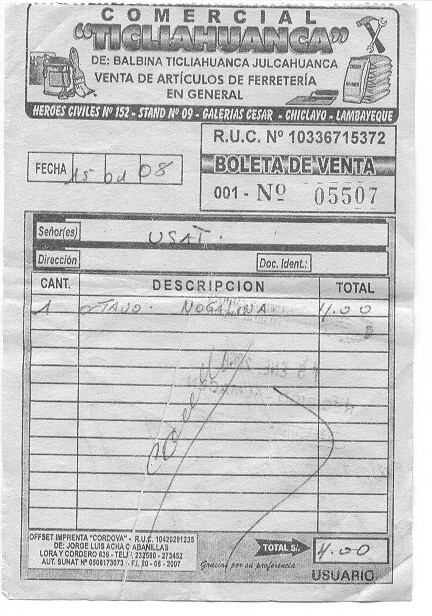 COMERCIAL
"TICLIAHUANCA"
DE: BALBINA TICLIAHUANCA JULCAHUANCA
VENTA DE ARTÍCULOS DE FERRETERÍA
EN GENERAL
HEROES CIVILES Nº 152 - STAND Nº 09 - GALERIAS CESAR - CHICLAYO - LAMBAYEQUE
R.U.C. Nº 10336715372
FECHA 15 01 08
BOLETA DE VENTA
001 - Nº 05507
Señor(es) USAT.
Dirección Doc. Ident.:
CANT. DESCRIPCION TOTAL
1 OCTAVO. NOGALINA 4.00
OFFSET IMPRENTA "CORDOVA" - R.U.C. 10420291235
DE: JORGE LUIS ACHA CABANILLAS
LORA Y CORDERO 636 - TELF.: 232590 - 273452
AUT. SUNAT Nº 0508173073 - F.I. 20 - 06 - 2007
TOTAL S/. 4.00
Gracias por su preferencia
USUARIO